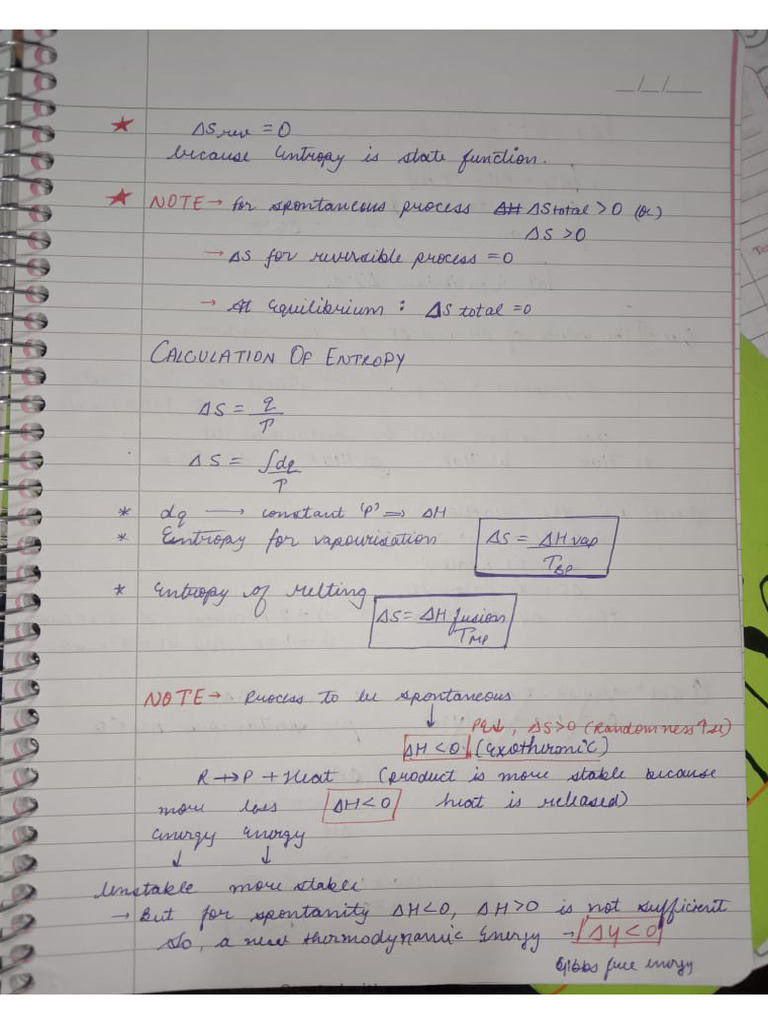 _/_/_
★ ΔS rev = 0
because Entropy is state function.
★ NOTE → for spontaneous process ΔH ΔS total > 0 (or)
ΔS > 0
→ ΔS for reversible process = 0
→ At Equilibrium : ΔS total = 0
CALCULATION OF ENTROPY
ΔS = q
T
ΔS = ∫dq
T
* dq → constant 'P' ⇒ ΔH
* Entropy for vapourisation ΔS = ΔH vap
T BP
* Entropy of melting
ΔS = ΔH fusion
T MP
NOTE → Process to be spontaneous
↓ PE↓, ΔS>0 (Randomness ↑se)
ΔH < 0 (Exothermic)
R → P + Heat (product is more stable because
more less ΔH < 0 heat is released)
energy energy
↓ ↓
Unstable more stable
→ But for spontanity ΔH<0, ΔH>0 is not sufficient
So, a new thermodynamic Energy → ΔG < 0
Gibbs free energy